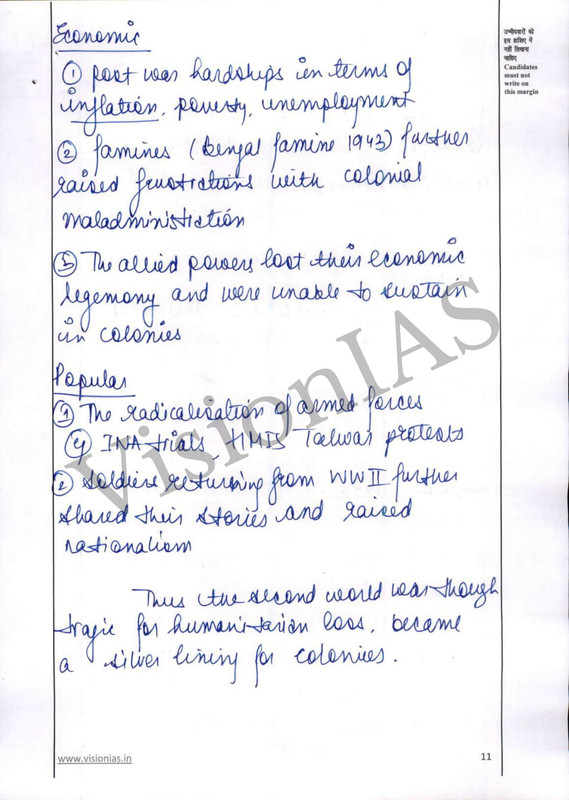 Economic
उम्मीदवारों को
इस हाशिए में
नहीं लिखना
चाहिए
Candidates
must not
write on
this margin
① post war hardships in terms of
inflation, poverty, unemployment
② famines (Bengal famine 1943) further
raised frustrations with colonial
maladministration
③ The allied powers lost their economic
hegemony and were unable to sustain
in colonies
Popular
① The radicalisation of armed forces
eg INA trials, HMIS Talwar protests
② Soldiers returning from WW II further
shared their stories and raised
nationalism
Thus the second world war though
tragic for humanitarian loss, became
a silver lining for colonies.
VisionIAS
www.visionias.in
11